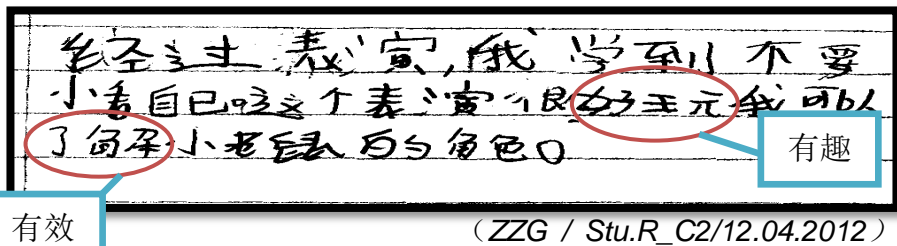 经过表演,我学到不要
小看自己这个表演很好玩我可以
了解小老鼠的角色。
有趣
有效
（ZZG / Stu.R_C2/12.04.2012）